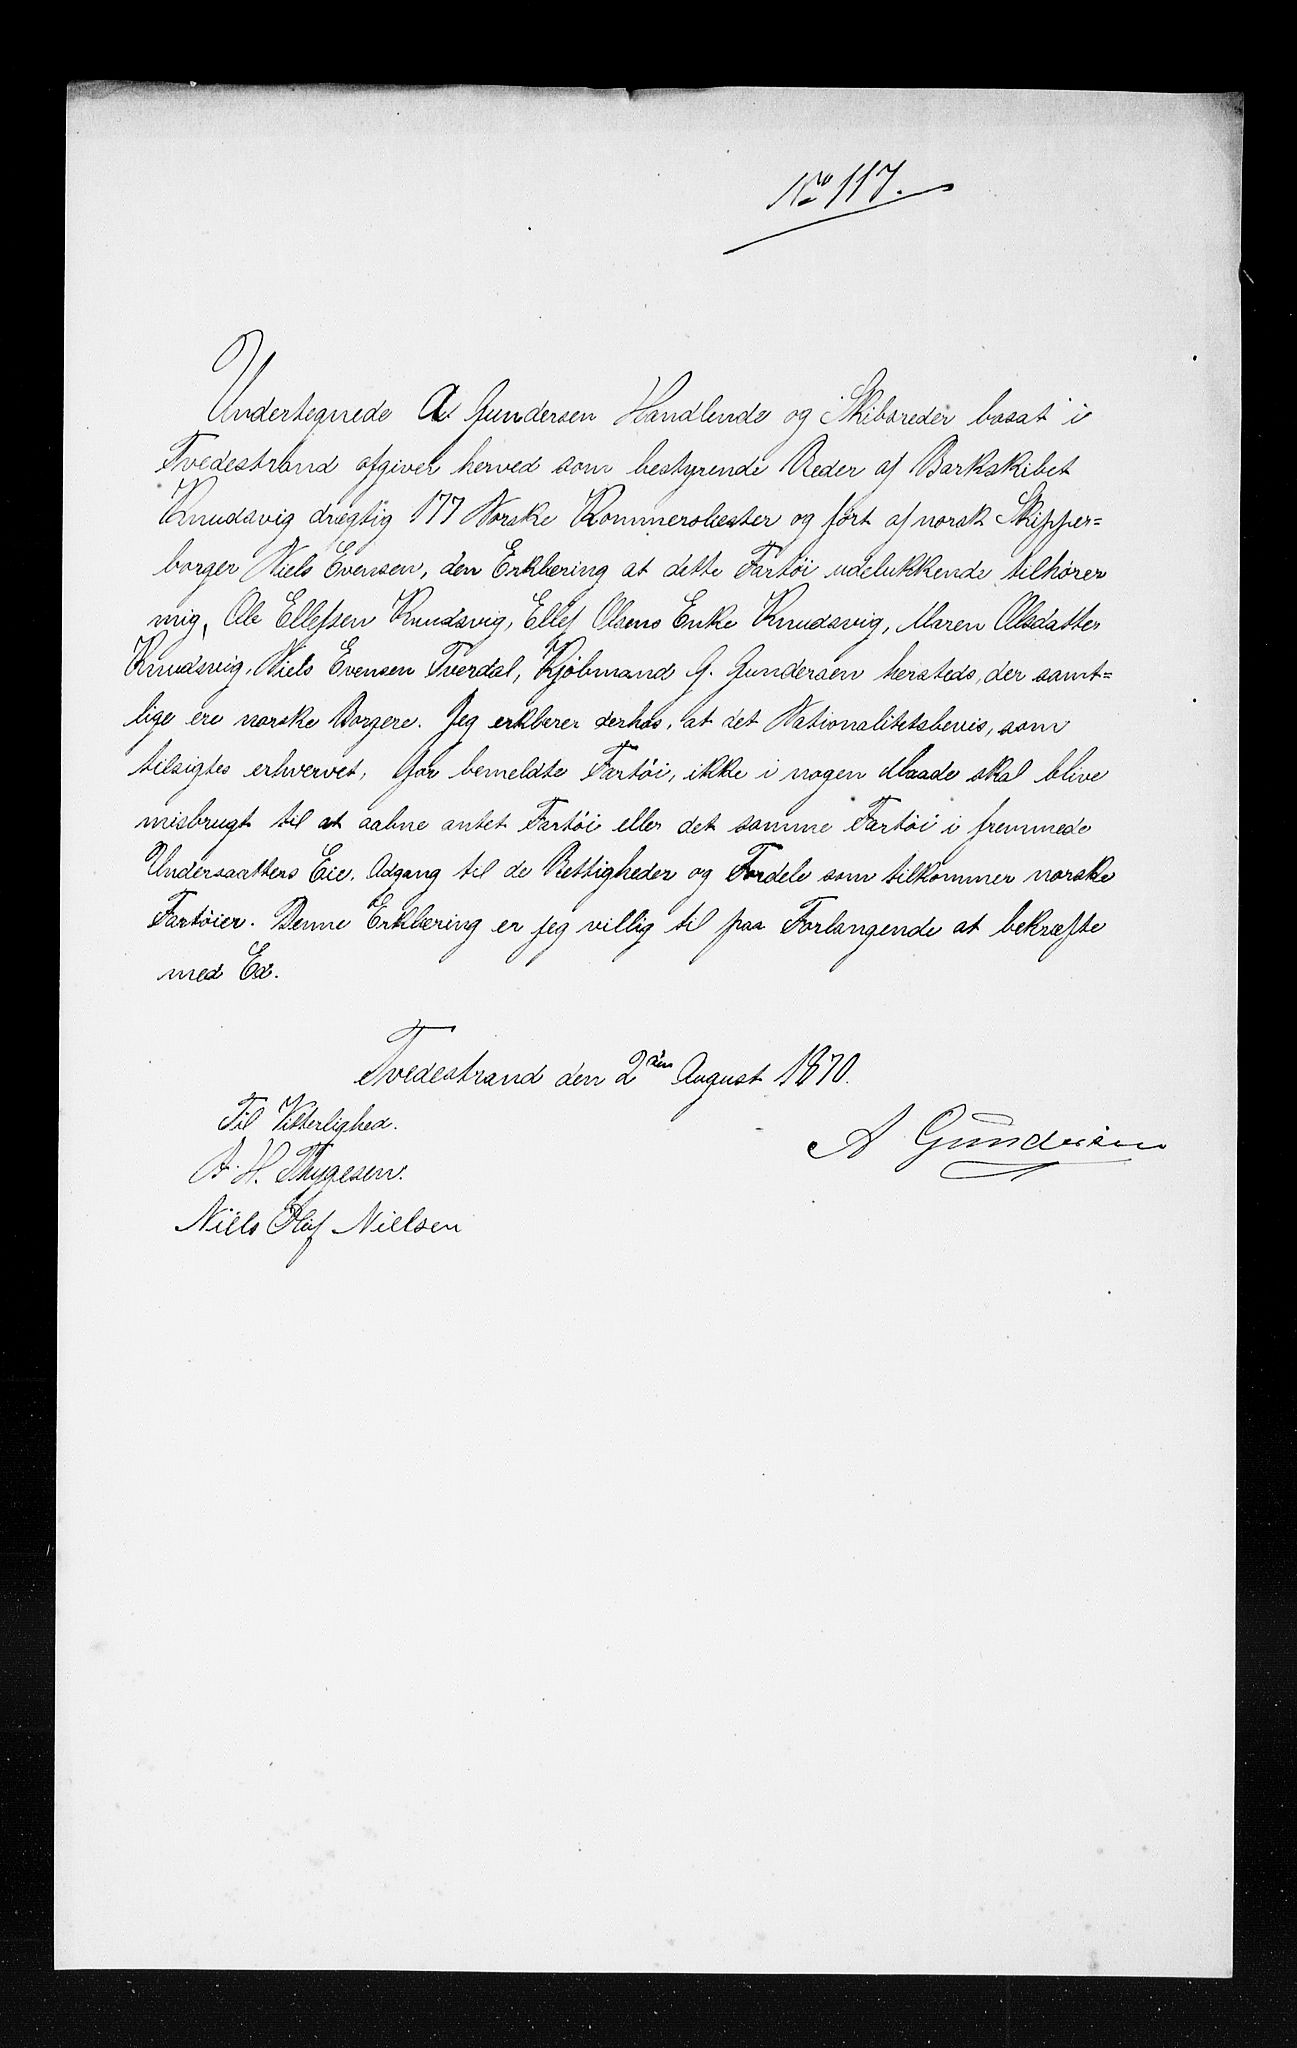 No 117.
Undertegnede A. Gundersen Handlende og Skibsreder bosat i
Tvedestrand afgiver herved som bestyrende Reder af Barkskibet
Knudsvig drægtig 177 Norske Kommerslæster og ført af norsk Skipper=
borger Niels Evensen, den Erklæring at dette Fartöi udelukkende tilhører
mig, Ole Ellefsen Knudsvig, Ellef Olsens Enke Knudsvig, Maren Olsdatter
Knudsvig, Niels Evensen Tverdal, Kjöbmand G. Gundersen hersteds, der samt=
lige ere norske Borgere. Jeg erklærer derhos, at det Nationalitetsbevis, som
tilsigtes erhvervet, for bemeldte Fartöi, ikke i nogen Maade skal blive
misbrugt til at aabne antet Fartöi eller det samme Fartöi i fremmede
Undersaatters Eie, Adgang til de Rettigheder og Fordele som tilkommer norske
Fartöier. Denne Erklæring er jeg villig til paa Forlangende at bekræfte
med Ed.
Tvedestrand den 2den August 1870.
Til Vitterlighed.
A Gundersen
A. H. Thygesen.
Niels Olaf Nielsen